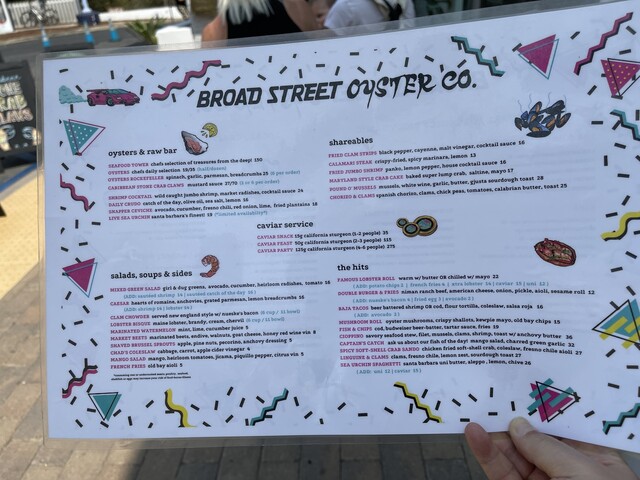 BROAD STREET OYSTER CO.
oysters & raw bar
SEAFOOD TOWER chefs selection of treasures from the deep! 150
OYSTERS chefs daily selection 18/35 (half/dozen)
OYSTERS ROCKEFELLER spinach, garlic, parmesan, breadcrumbs 25 (6 per order)
CARIBBEAN STONE CRAB CLAWS mustard sauce 37/70 (3 or 6 per order)
SHRIMP COCKTAIL wild caught jumbo shrimp, market radishes, cocktail sauce 24
DAILY CRUDO catch of the day, olive oil, sea salt, lemon 16
SNAPPER CEVICHE avocado, cucumber, fresno chili, red onion, lime, fried plantains 18
LIVE SEA URCHIN santa barbara's finest! 19 (*limited availability*)
shareables
FRIED CLAM STRIPS black pepper, cayenne, malt vinegar, cocktail sauce 16
CALAMARI STEAK crispy-fried, spicy marinara, lemon 13
FRIED JUMBO SHRIMP panko, lemon pepper, house cocktail sauce 16
MARYLAND STYLE CRAB CAKE baked super lump crab, saltine, mayo 17
POUND O' MUSSELS mussels, white wine, garlic, butter, gjusta sourdough toast 28
CHORIZO & CLAMS spanish chorizo, clams, chick peas, tomatoes, calabrian butter, toast 25
caviar service
CAVIAR SNACK 15g california sturgeon (1-2 people) 35
CAVIAR FEAST 50g california sturgeon (2-3 people) 115
CAVIAR PARTY 120g california sturgeon (4-6 people) 275
salads, soups & sides
MIXED GREEN SALAD girl & dug greens, avocado, cucumber, heirloom radishes, tomato 16
CAESAR hearts of romaine, anchovies, grated parmesan, lemon breadcrumbs 16
CLAM CHOWDER served new england style w/ nueske's bacon
LOBSTER BISQUE maine lobster, brandy, cream, chervil
MARINATED WATERMELON mint, lime, cucumber juice 5
MARKET BEETS marinated beets, endive, walnuts, goat cheese, honey red wine vin 8
SHAVED BRUSSEL SPROUTS apple, pine nuts, pecorino, anchovy dressing 5
CHAD'S COLESLAW cabbage, carrot, apple cider vinegar 4
MANGO SALAD mango, heirloom tomatoes, jicama, piquillo pepper, citrus vin 5
FRENCH FRIES old bay aioli 5
the hits
FAMOUS LOBSTER ROLL warm w/ butter OR chilled w/ mayo 22
DOUBLE BURGER & FRIES niman ranch beef, american cheese, onion, pickle, aioli, sesame roll 12
BAJA TACOS beer battered shrimp OR cod, flour tortilla, coleslaw, salsa roja 16
MUSHROOM ROLL oyster mushrooms, crispy shallots, kewpie mayo, old bay chips 15
FISH & CHIPS cod, budweiser beer-batter, tartar sauce, fries 19
CIOPPINO savory seafood stew, filet, mussels, clams, shrimp, toast w/ anchovy butter 36
CAPTAIN'S CATCH ask us about our fish of the day! mango salad, charred green garlic 32
SPICY SOFT-SHELL CRAB SANDO chicken fried soft-shell crab, coleslaw, fresno chile aioli 27
LINGUINE & CLAMS clams, fresno chile, lemon zest, sourdough toast 27
SEA URCHIN SPAGHETTI santa barbara uni butter, aleppo, lemon, chive 26